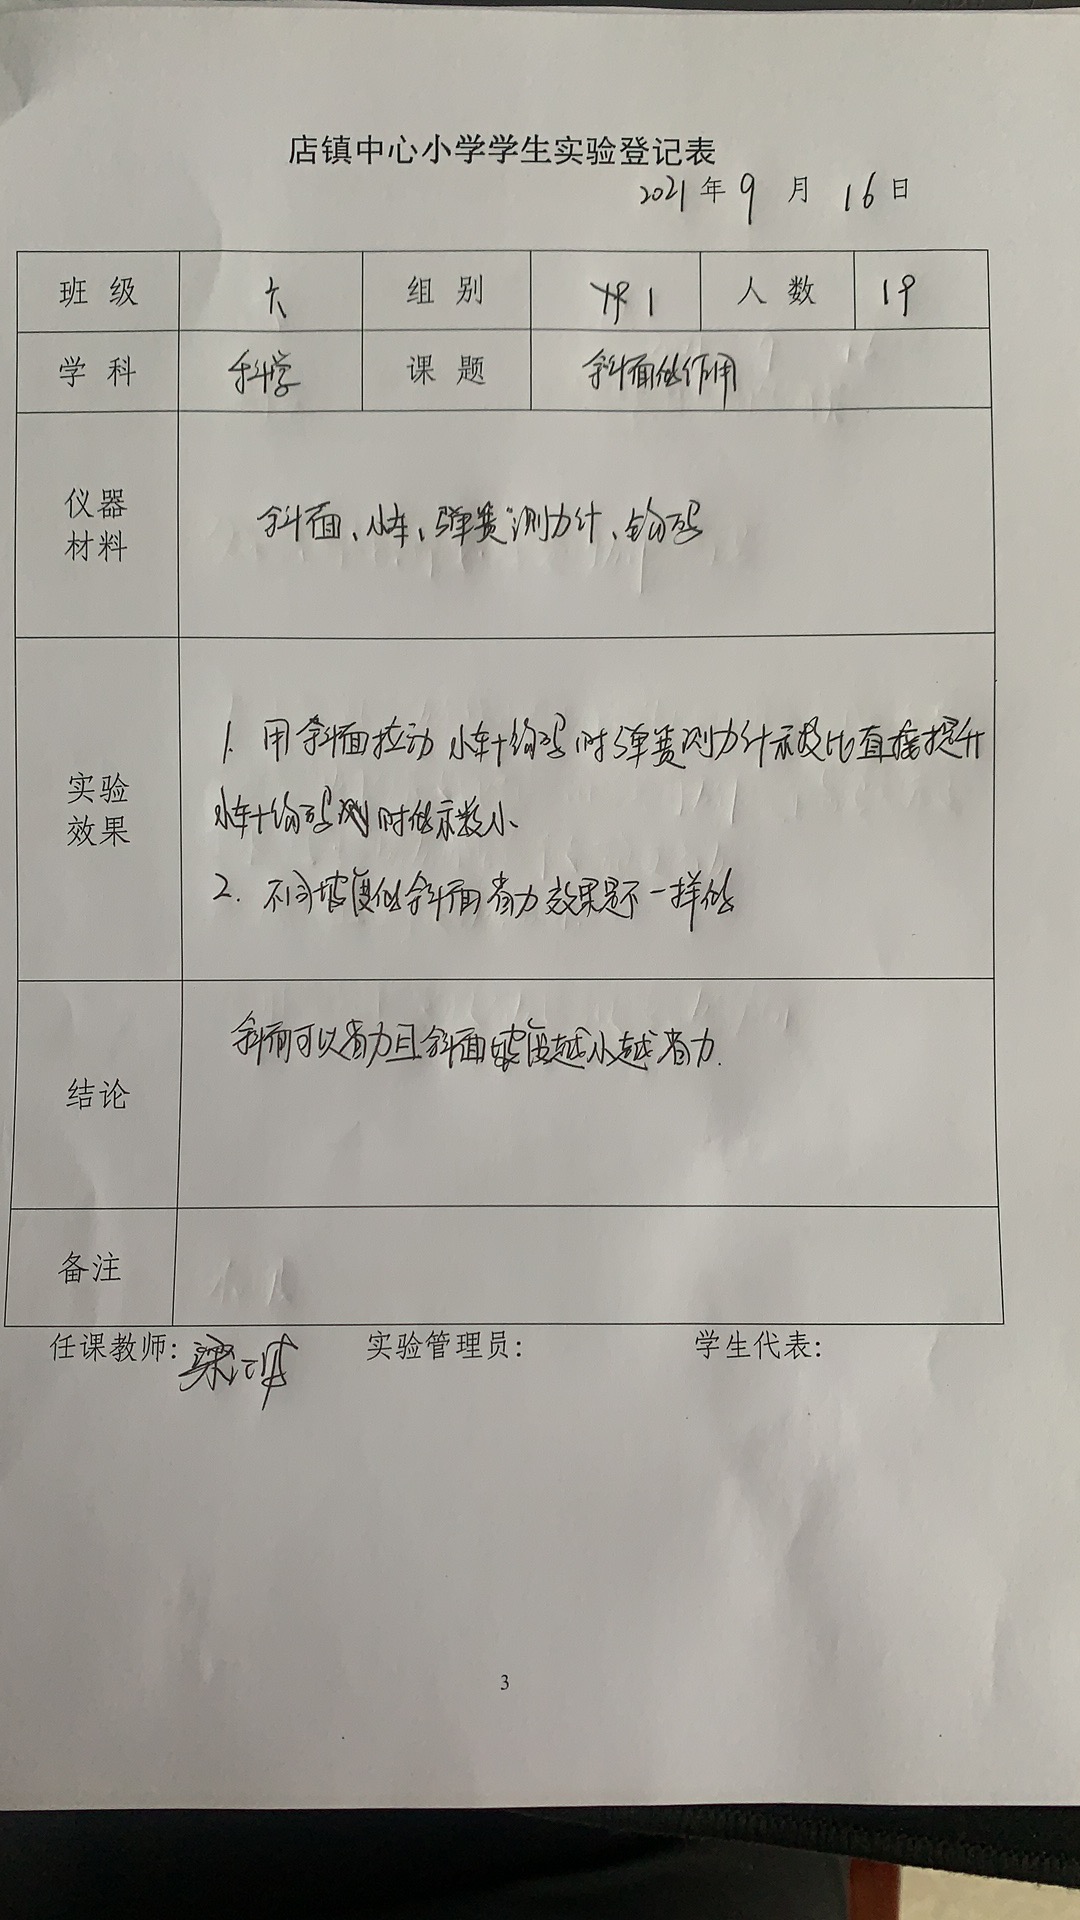 店镇中心小学学生实验登记表
2021年9月16日
班级 六 组别 1 人数 19
学科 科学 课题 斜面的作用
仪器材料 斜面、小车、弹簧测力计、钩码
实验效果
1. 用斜面拉动小车+钩码时弹簧测力计示数比直接提升
小车+钩码 时的示数小、
2. 不同坡度的斜面省力效果是不一样的
结论 斜面可以省力且斜面坡度越小越省力.
备注
任课教师: 梁 实验管理员: 学生代表:
3